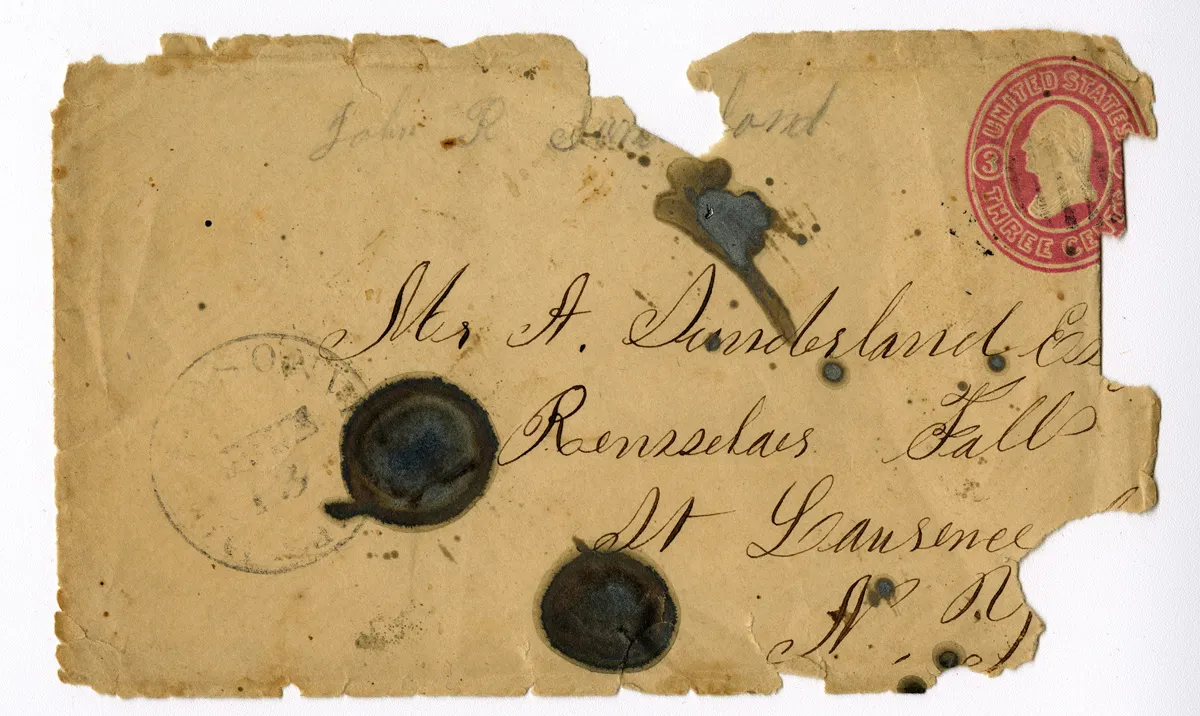 John R Sun land
UNITED STATES
3
THREE CE
Mr A. Sunderland Es
Rensselaer Fall
St Lawrence
N Y